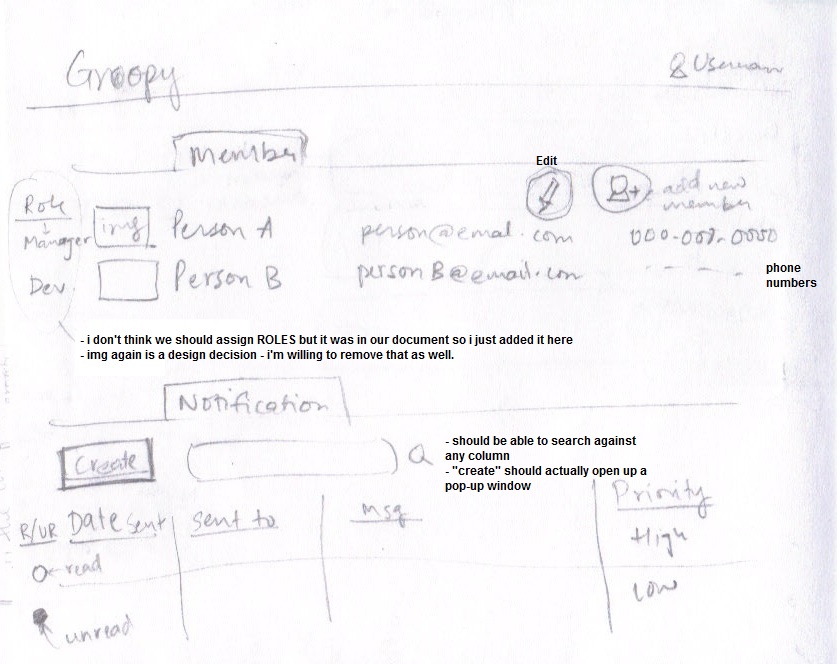 Groopy
Usernam
Member
Edit
add new
member
Role
Manager
img
Person A
person@email.com
000-000-0000
Dev.
Person B
personB@email.com
phone
numbers
- i don't think we should assign ROLES but it was in our document so i just added it here
- img again is a design decision - i'm willing to remove that as well.
Notification
Create
- should be able to search against
any column
- "create" should actually open up a
pop-up window
R/UR
Date Sent
Sent to
Msg
Priority
High
read
Low
unread